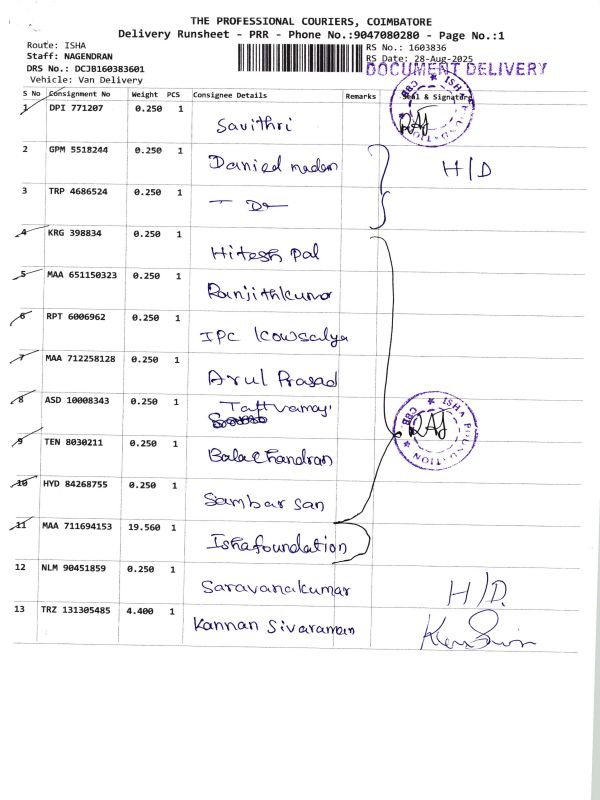 THE PROFESSIONAL COURIERS, COIMBATORE
Delivery Runsheet - PRR - Phone No.:9047080280 - Page No.:1
Route: ISHA
Staff: NAGENDRAN
DRS No.: DCJB160383601
Vehicle: Van Delivery
RS No.: 1603836
RS Date: 28-Aug-2025
DOCUMENT DELIVERY
S No Consignment No Weight PCS Consignee Details Remarks Seal & Signature
1 DPI 771207 0.250 1 Savithri
ISHA FOUNDATION CBB
RAJ
2 GPM 5518244 0.250 1 Danied madam H/D
3 TRP 4686524 0.250 1
4 KRG 398834 0.250 1 Hitesh pal
5 MAA 651150323 0.250 1 Ranjithkumar
6 RPT 6006962 0.250 1 IPC kowsalya
7 MAA 712258128 0.250 1 Arul Prasad
8 ASD 10008343 0.250 1 Tattvamayi
ISHA FOUNDATION CBB
RAJ
9 TEN 8030211 0.250 1 Balachandran
10 HYD 84268755 0.250 1 Sambarsan
11 MAA 711694153 19.560 1 Ishafoundation
12 NLM 90451859 0.250 1 Saravanakumar H/D.
13 TRZ 131305485 4.400 1 Kannan Sivaraman